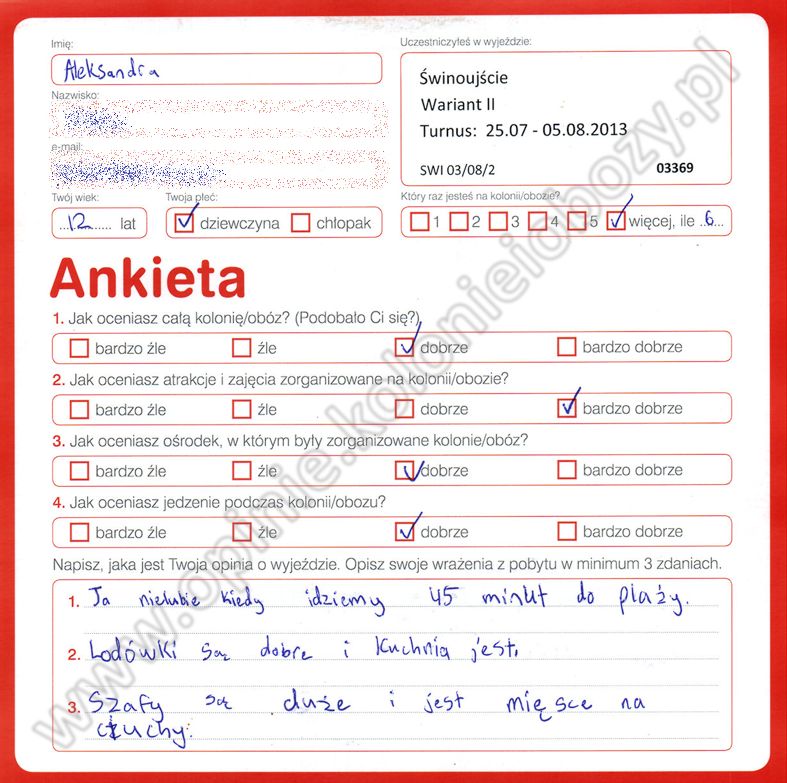 Imię:
Aleksandra
Nazwisko:
e-mail:
Twój wiek:
...12..... lat
Twoja płeć:
dziewczyna chłopak
Uczestniczyłeś w wyjeździe:
Świnoujście
Wariant II
Turnus: 25.07 - 05.08.2013
SWI 03/08/2 03369
Który raz jesteś na kolonii/obozie?
1 2 3 4 5 więcej, ile ..6...
Ankieta
1. Jak oceniasz całą kolonię/obóz? (Podobało Ci się?)
bardzo źle źle dobrze bardzo dobrze
2. Jak oceniasz atrakcje i zajęcia zorganizowane na kolonii/obozie?
bardzo źle źle dobrze bardzo dobrze
3. Jak oceniasz ośrodek, w którym były zorganizowane kolonie/obóz?
bardzo źle źle dobrze bardzo dobrze
4. Jak oceniasz jedzenie podczas kolonii/obozu?
bardzo źle źle dobrze bardzo dobrze
Napisz, jaka jest Twoja opinia o wyjeździe. Opisz swoje wrażenia z pobytu w minimum 3 zdaniach.
1. Ja nielubie kiedy idziemy 45 minut do plaży.
2. Lodówki są dobre i kuchnia jest.
3. Szafy są duże i jest mięsce na
ciuchy.
www.opinie.kolonieiobozy.pl